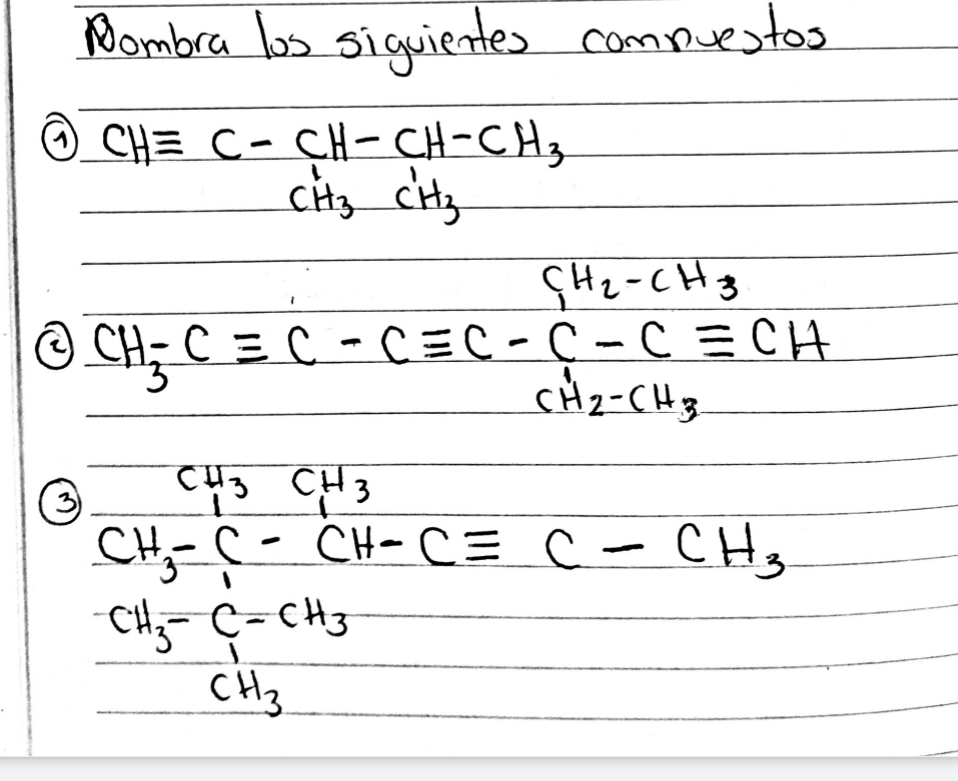 Nombra los siguientes compuestos
① CH≡ C - CH - CH - CH₃
CH₃ CH₃
CH₂-CH₃
② CH₃- C ≡ C - C ≡ C - C - C ≡ CH
CH₂-CH₃
③ CH₃ CH₃
CH₃- C - CH - C ≡ C - CH₃
CH₃- C - CH₃
CH₃